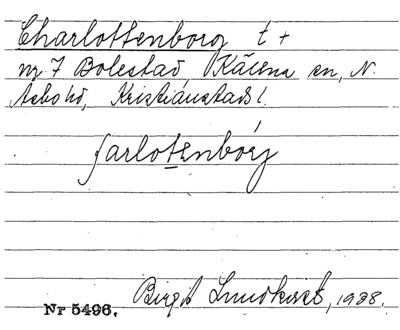 Charlottenborg t +
nr 7 Bolestad, Kåcena sn, N.
Åsbo hd, Kristianstads l.
ʃarlotenbórj
Birgit Lundkvist, 1928.
Nr 5496.